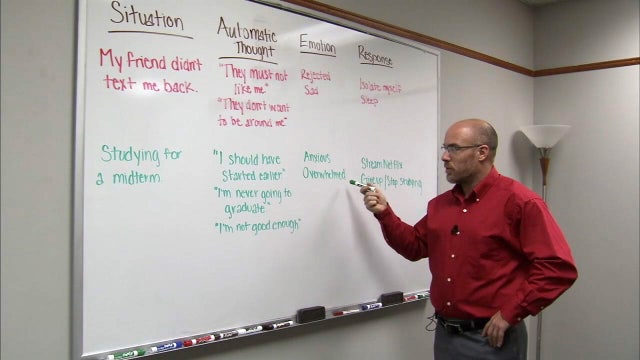 Situation
Automatic
Thought
Emotion
Response
My friend didn't
text me back.
"They must not
like me"
"They don't want
to be around me"
Rejected
Sad
Isolate myself
Sleep
Studying for
a midterm.
"I should have
started earlier"
"I'm never going to
graduate"
"I'm not good enough"
Anxious
Overwhelmed
Stream Netflix
Give up/Stop studying